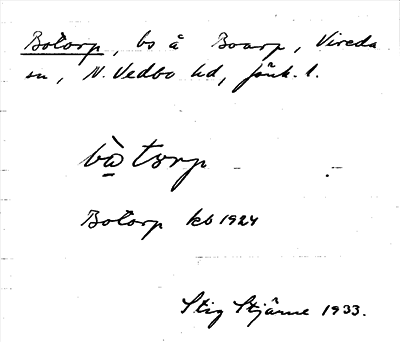 Botorp, bs å Boarp, Vireda
sn, N. Vedbo hd, Jönk. l.
bò̱torp
Botorp kb 1924
Stig Stjärne 1933.